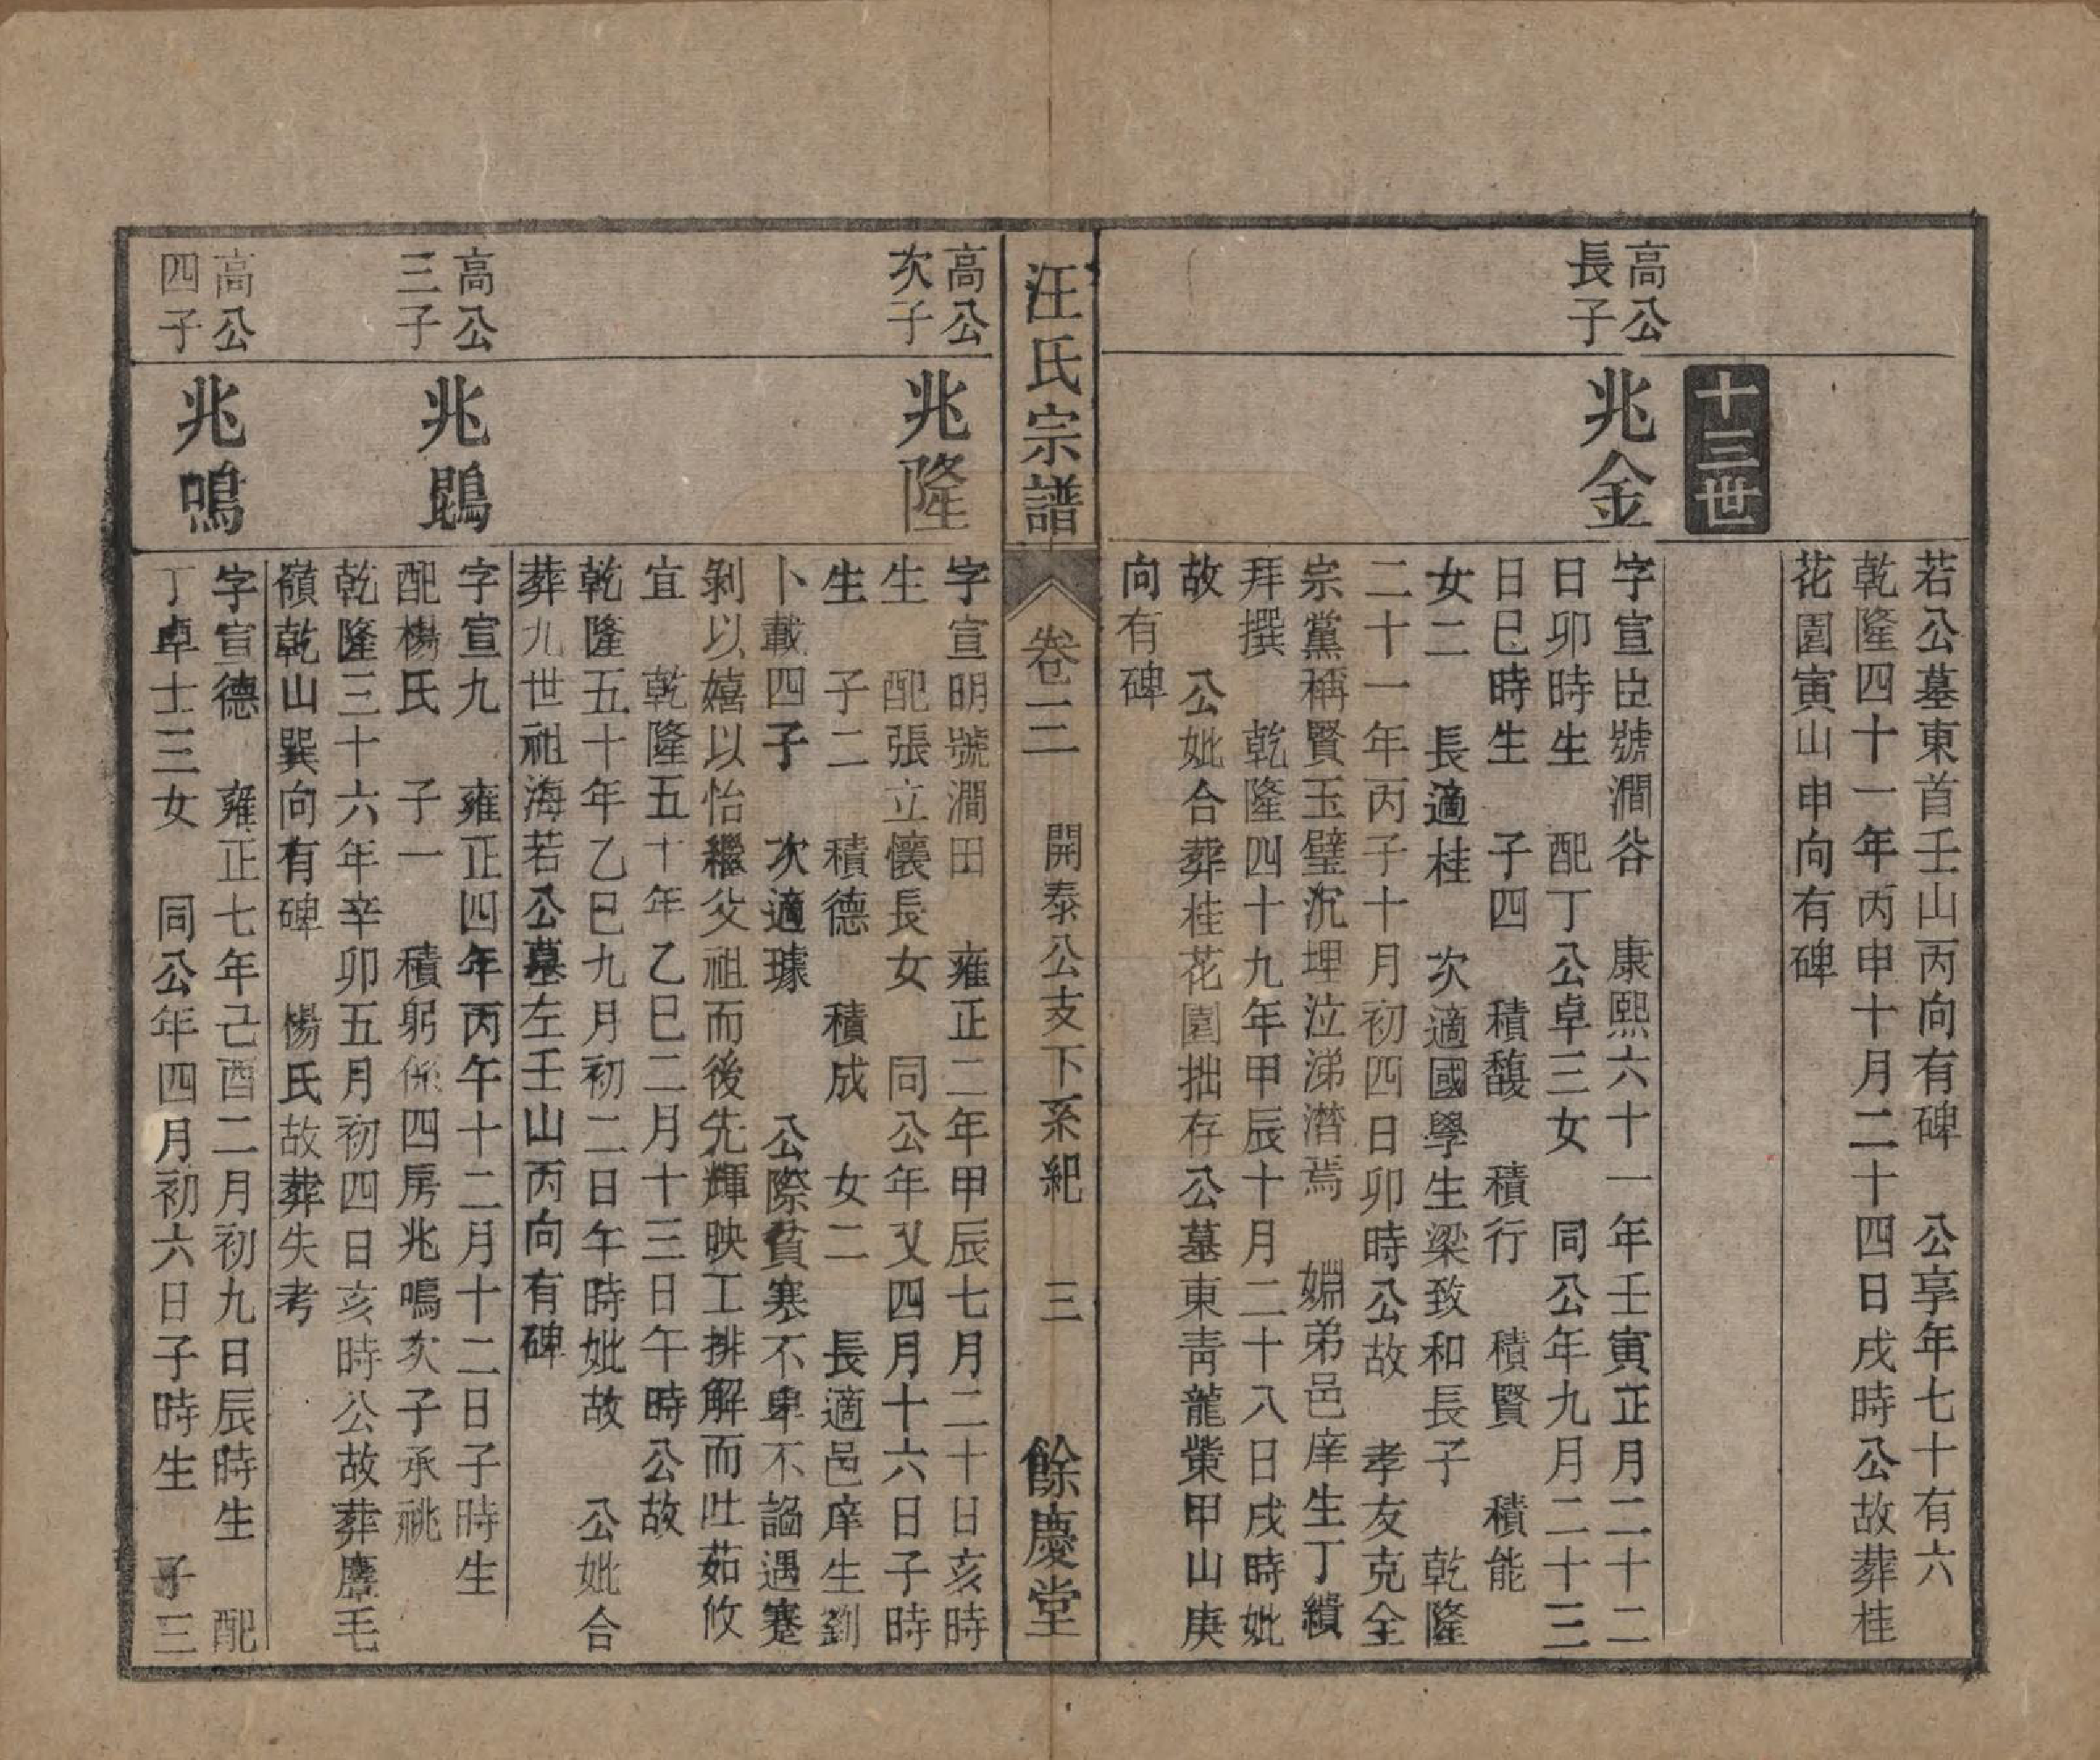 若公墓東首壬山丙向有碑　公享年七十有六
乾隆四十一年丙申十月二十四日戌時公故葬桂
花園寅山申向有碑
十三世
高公
長子
兆金
字宣臣號澗谷　康熙六十一年壬寅正月二十二
日卯時生　配丁公卓三女　同公年九月二十三
日巳時生　子四　積馥　積行　積賢　積能
女二　長適桂　次適國學生梁致和長子　乾隆
二十一年丙子十月初四日卯時公故　孝友克全
宗黨稱賢玉璧沉埋泣涕潸焉　婣弟邑庠生丁纘
拜撰　乾隆四十九年甲辰十月二十八日戌時妣
故　公妣合葬桂花園拙存公墓東青龍嘴甲山庚
向有碑
汪氏宗譜
卷二
開泰公支下系紀
三
餘慶堂
高公
次子
兆隆
字宣明號澗田　雍正二年甲辰七月二十日亥時
生　配張立懷長女　同公年又四月十六日子時
生　子二　積德　積成　女二　長適邑庠生劉
卜載四子　次適璩　公際貧寒不卑不謟遇蹇
剝以嬉以怡繼父祖而後先輝映工排解而吐茹攸
宜　乾隆五十年乙巳二月十三日午時公故
乾隆五十年乙巳九月初二日午時妣故　公妣合
葬九世祖海若公墓左壬山丙向有碑
高公
三子
兆鵾
字宣九　雍正四年丙午十二月十二日子時生
配楊氏　子一　積躬係四房兆鳴次子承祧
乾隆三十六年辛卯五月初四日亥時公故葬麞毛
嶺乾山巽向有碑　楊氏故葬失考
高公
四子
兆鳴
字宣德　雍正七年己酉二月初九日辰時生　配
丁卓士三女　同公年四月初六日子時生　子三